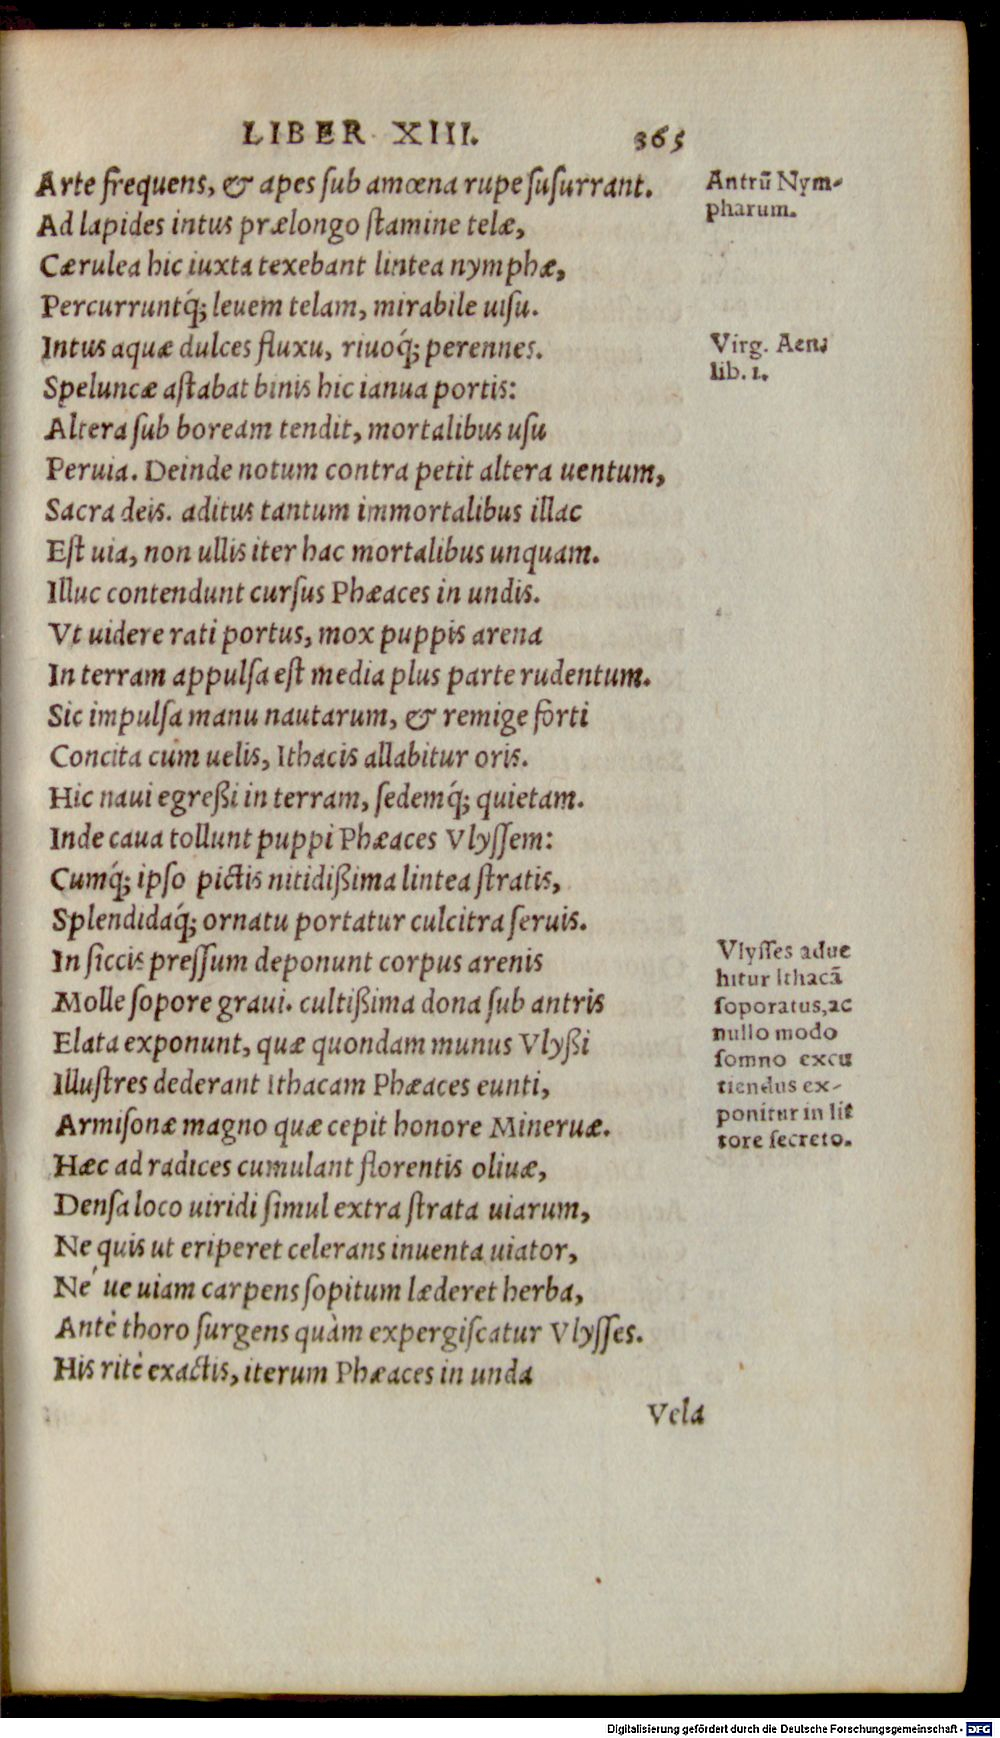 LIBER XIII. 365
Arte frequens, & apes ſub amœna rupe ſuſurrant.
Ad lapides intus prælongo ſtamine telæ,
Cærulea hic iuxta texebant lintea nymphæ,
Percurruntq́; leuem telam, mirabile uiſu.
Intus aquæ dulces fluxu, riuoq́; perennes.
Speluncæ aſtabat binis hic ianua portis:
Altera ſub boream tendit, mortalibus uſu
Peruia. Deinde notum contra petit altera uentum,
Sacra deis. aditus tantum immortalibus illac
Eſt uia, non ullis iter hac mortalibus unquam.
Illuc contendunt curſus Phæaces in undis.
Vt uidere rati portus, mox puppis arena
In terram appulſa eſt media plus parte rudentum.
Sic impulſa manu nautarum, & remige forti
Concita cum uelis, Ithacis allabitur oris.
Hic naui egreßi in terram, ſedemq́; quietam.
Inde caua tollunt puppi Phæaces Vlyſſem:
Cumq́; ipſo pictis nitidißima lintea ſtratis,
Splendidaq́; ornatu portatur culcitra ſeruis.
In ſiccis preſſum deponunt corpus arenis
Molle ſopore graui. cultißima dona ſub antris
Elata exponunt, quæ quondam munus Vlyßi
Illuſtres dederant Ithacam Phæaces eunti,
Armiſonæ magno quæ cepit honore Mineruæ.
Hæc ad radices cumulant florentis oliuæ,
Denſa loco uiridi ſimul extra ſtrata uiarum,
Ne quis ut eriperet celerans inuenta uiator,
Ne ́ ue uiam carpens ſopitum læderet herba,
Antè thoro ſurgens quàm expergiſcatur Vlyſſes.
His ritè exactis, iterum Phæaces in unda
Vela
Antrũ Nym-
pharum.
Virg. Aen.
lib. 1.
Vlyſſes adue
hitur Ithacã
ſoporatus, ac
nullo modo
ſomno excu
tiendus ex-
ponitur in lit
tore ſecreto.
Digitalisierung gefördert durch die Deutsche Forschungsgemeinschaft - DFG